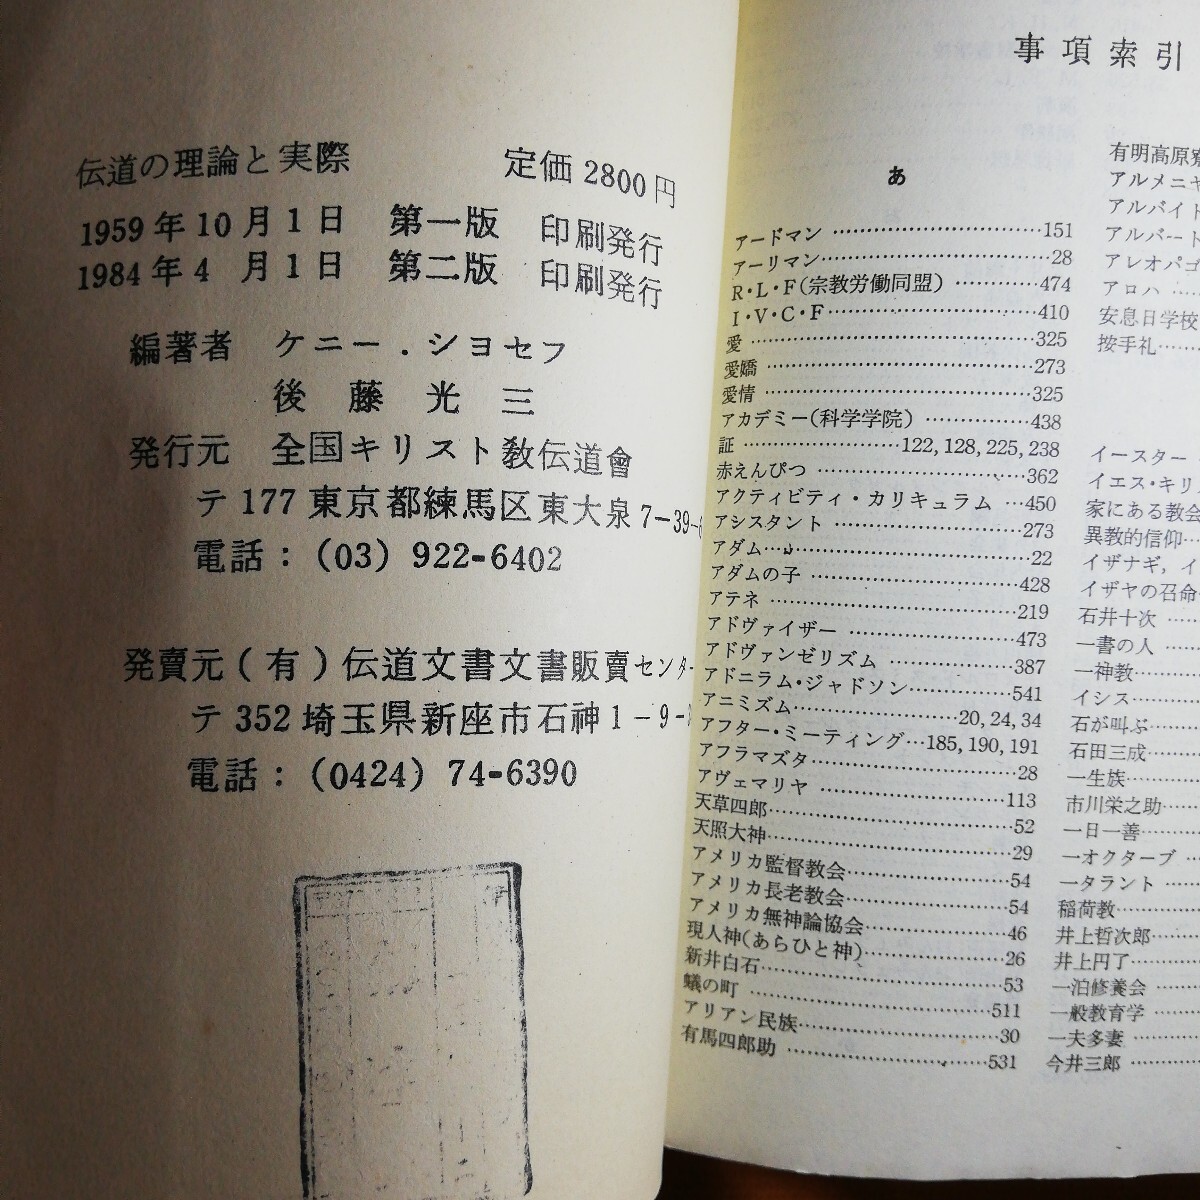 伝道の理論と実際 定価2800円
1959年10月1日 第一版 印刷発行
1984年4月1日 第二版 印刷発行
編著者 ケニー．ショセフ
後藤光三
発行元 全国キリスト教伝道會
テ177東京都練馬区東大泉7-39-6
電話：(03) 922-6402
発賣元(有)伝道文書文書販賣センター
テ352埼玉県新座市石神1-9-
電話：(0424) 74-6390
事項索引
あ
アードマン……151
アーリマン……28
R・L・F(宗教労働同盟)……474
I・V・C・F……410
愛……325
愛嬌……273
愛情……325
アカデミー(科学学院)……438
証……122, 128, 225, 238
赤えんぴつ……362
アクティビティ・カリキュラム…450
アシスタント……273
アダム……22
アダムの子……428
アテネ……219
アドヴァイザー……473
アドヴァンゼリズム……387
アドニラム・ジャドソン……541
アニミズム……20, 24, 34
アフター・ミーティング…185, 190, 191
アフラマズタ……28
アヴェマリヤ……113
天草四郎……52
天照大神……29
アメリカ監督教会……54
アメリカ長老教会……54
アメリカ無神論協会……46
現人神(あらひと神)……26
新井白石……53
蟻の町……511
アリアン民族……30
有馬四郎助……531
有明高原寮
アルメニヤ
アルバイト
アルバート
アレオパゴ
アロハ……
安息日学校
按手礼……
イースター
イエス・キリ
家にある教会
異教的信仰…
イザナギ，イ
イザヤの召命
石井十次……
一書の人……
一神教……
イシス……
石が叫ぶ……
石田三成……
一生族……
市川栄之助……
一日一善……
一オクターブ
一タラント……
稲荷教……
井上哲次郎……
井上円了……
一泊修養会……
一般教育学……
一夫多妻……
今井三郎……